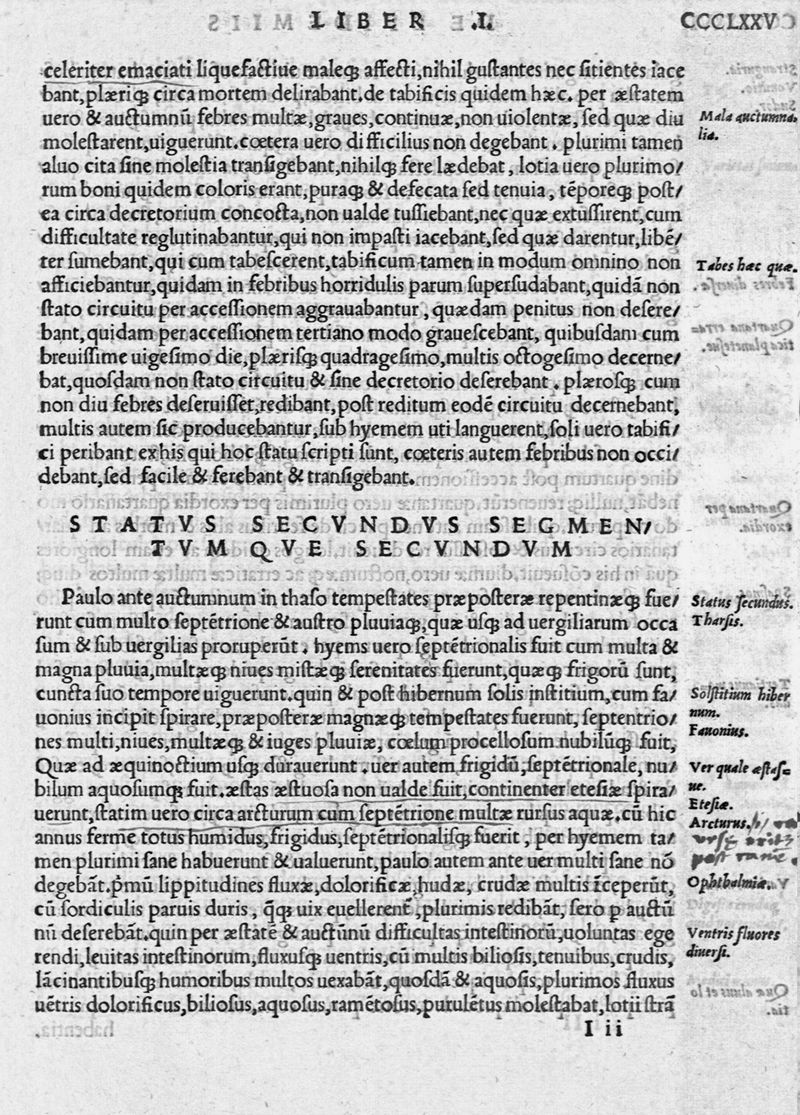 LIBER .I.
CCCLXXV
celeriter emaciati liquefactiue maleq́; affecti,nihil gustantes nec sitientes iace
bant,plæriq́; circa mortem delirabant.de tabificis quidem hæc. per æstatem
uero & auctumnũ febres multæ,graues,continuæ,non uiolentæ, sed quæ diu
molestarent,uiguerunt.cœtera uero difficilius non degebant . plurimi tamen
aluo cita sine molestia transigebant,nihilq́; fere lædebat , lotia uero plurimo/
rum boni quidem coloris erant,puraq́; & defecata sed tenuia, tẽporeq́; post/
ea circa decretorium concocta,non ualde tussiebant,nec quæ extussirent,cum
difficultate reglutinabantur,qui non impasti iacebant,sed quæ darentur,libẽ/
ter sumebant,qui cum tabescerent,tabificum tamen in modum omnino non
afficiebantur,quidam in febribus horridulis parum supersudabant,quidã non
stato circuitu per accessionem aggrauabantur , quædam penitus non desere/
bant,quidam per accessionem tertiano modo grauescebant, quibusdam cum
breuissime uigesimo die,plærisq́; quadragesimo,multis octogesimo decerne/
bat,quosdam non stato circuitu & sine decretorio deserebant . plærosq́; cum
non diu febres deseruisset,redibant,post reditum eodẽ circuitu decernebant,
multis autem sic producebantur,sub hyemem uti languerent,soli uero tabifi/
ci peribant ex his qui hoc statu scripti sunt, cœteris autem febribus non occi/
debant,sed facile & ferebant & transigebant.
STATVS SECVNDVS SEGMEN/
TVM QVE SECVNDVM
Paulo ante auctumnum in thaso tempestates præposteræ repentinæq́; fue/
runt cum multo septẽtrione & austro pluuiaq́;,quæ usq́; ad uergiliarum occa
sum & sub uergilias proruperũt . hyems uero septẽtrionalis fuit cum multa &
magna pluuia,multæq́; niues mistæq́; serenitates fuerunt,quæq́; frigorũ sunt,
cuncta suo tempore uiguerunt.quin & post hibernum solis institium,cum fa/
uonius incipit spirare,præposteræ magnæq́; tempestates fuerunt, septentrio/
nes multi,niues,multæq́; & iuges pluuiæ, cœlum procellosum nubilũq́; fuit,
Quæ ad æquinoctium usq́; durauerunt . uer autem frigidũ,septẽtrionale, nu/
bilum aquosumq́; fuit.æstas æstuosa non ualde fuit,continenter etesiæ spira/
uerunt,statim uero circa arcturum cum septẽtrione multæ rursus aquæ.cũ hic
annus ferme totus humidus,frigidus,septẽtrionalisq́; fuerit , per hyemem ta/
men plurimi sane habuerunt & ualuerunt,paulo autem ante uer multi sane nõ
degebãt.p̃mũ lippitudines fluxæ,dolorificæ,hudæ, crudæ multis ĩceperũt,
cũ sordiculis paruis duris , q̃q́; uix euellerent̃ ,plurimis redibãt, sero p auctũ
nũ deserebãt.quin per æstatẽ & auctũnũ difficultas intestinorũ,uoluntas ege
rendi,leuitas intestinorum,fluxusq́; uentris,cũ multis biliosis,tenuibus,crudis,
lãcinantibusq́; humoribus multos uexabãt,quosdã & aquosis,plurimos fluxus
uẽtris dolorificus,biliosus,aquosus,ramẽtosus,purulẽtus molestabat,lotii strã
I ii
Mala auctumna=
lia.
Tabes hæc quæ.
Status secundus.
Tharsis.
Solstitium hiber
num.
Fauonius.
Ver quale æstas=
ue.
Etesiæ.
Arcturus.
Ophthalmiæ.
Ventris fluores
diuersi.